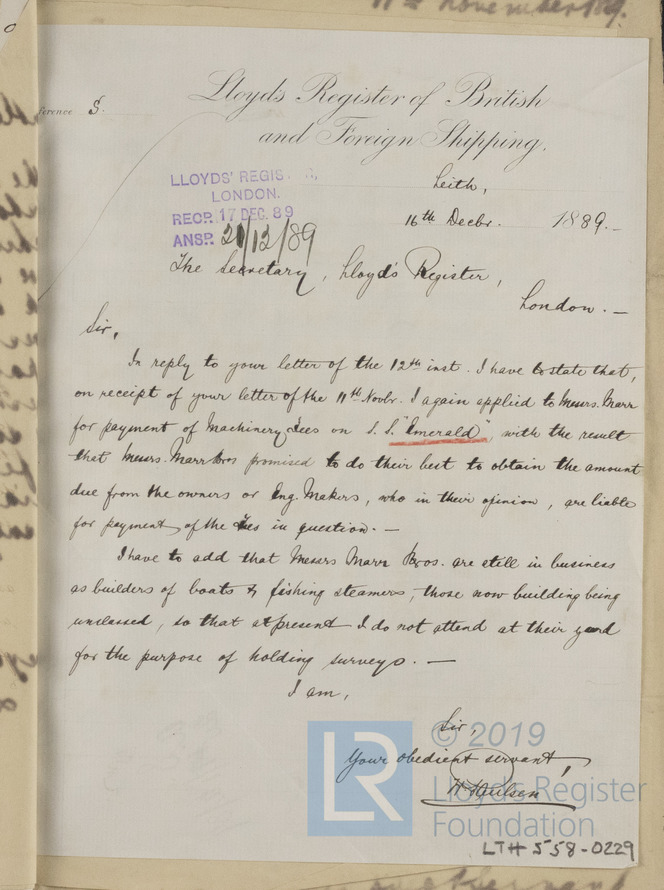 11th November 189.
ference S.
Lloyd's Register of British
and Foreign Shipping.
LLOYDS' REGIS
LONDON.
RECP. 17 DEC. 89
ANSP. 21/12/89
Leith,
16th Decbr. 1889.-
The Secretary, Lloyd's Register,
London. -
Sir,
In reply to your letter of the 12th inst. I have to state that,
on receipt of your letter of the 11th Novbr. I again applied to Messrs. Marr
for payment of Machinery Fees on S.S. "Emerald", with the result
that Messrs. Marr Bros promised to do their best to obtain the amount
due from the owners or Eng. Makers, who in their opinion, are liable
for payment of the Fees in question. -
I have to add that Messrs Marr Bros. are still in business
as builders of boats & fishing steamers, those now building being
unclassed, so that at present I do not attend at their yard
for the purpose of holding surveys. -
I am,
Sir,
Your obedient servant,
H Paulsen
LR © 2019
Lloyd's Register
Foundation
LTH 558-0229